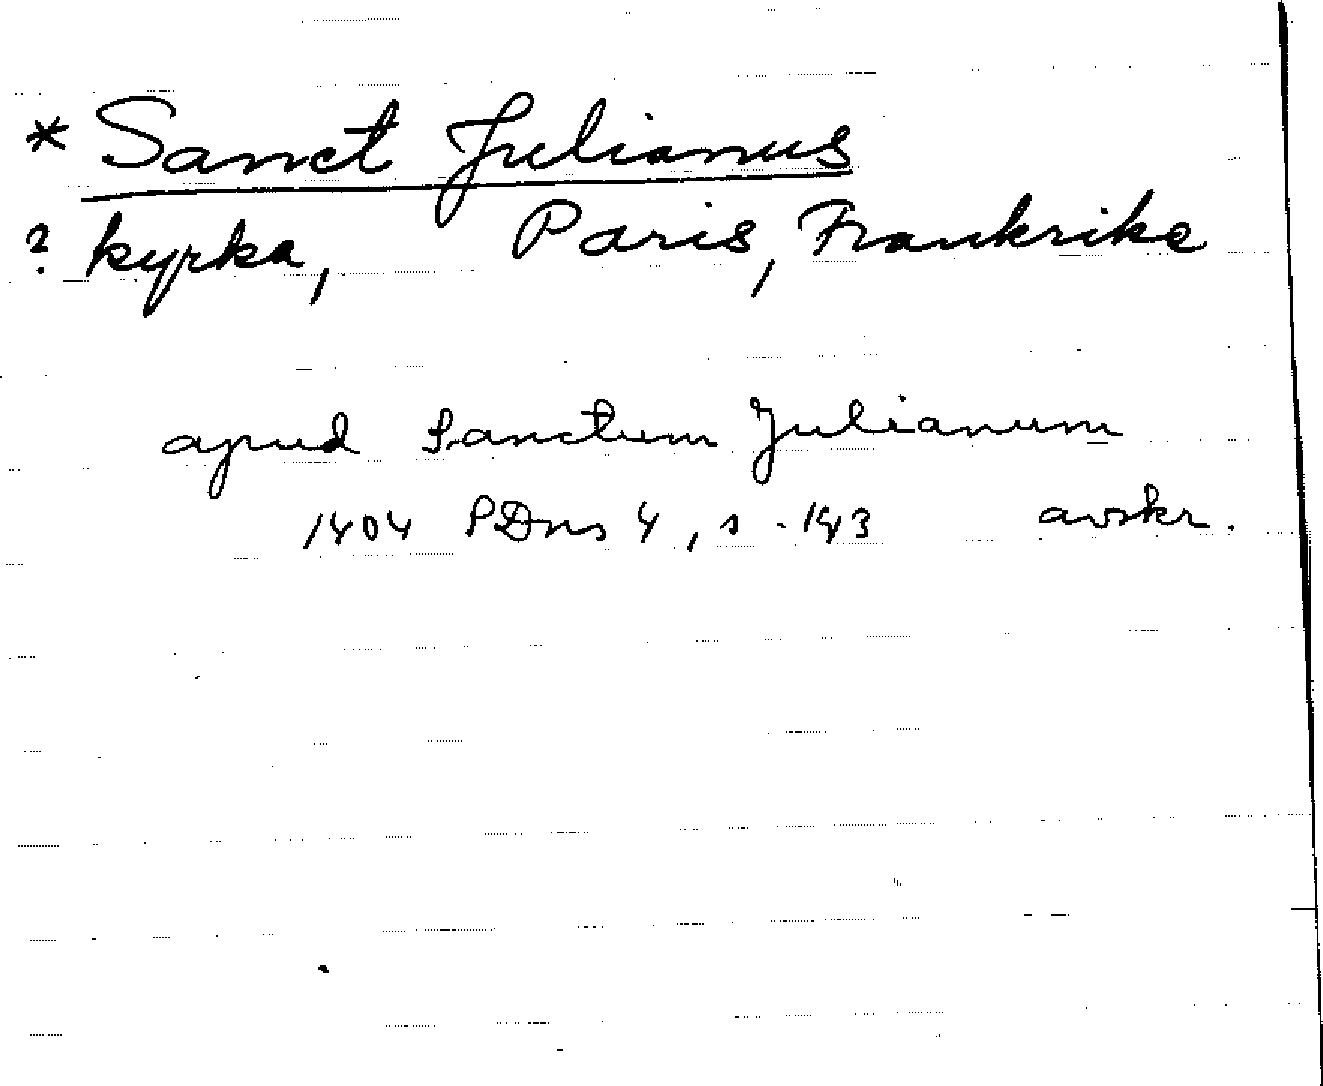 * Sanct Julianus
? kyrka, Paris, Frankrike
apud Sanctum Julianum
1404 PDns 4, s. 143 avskr.